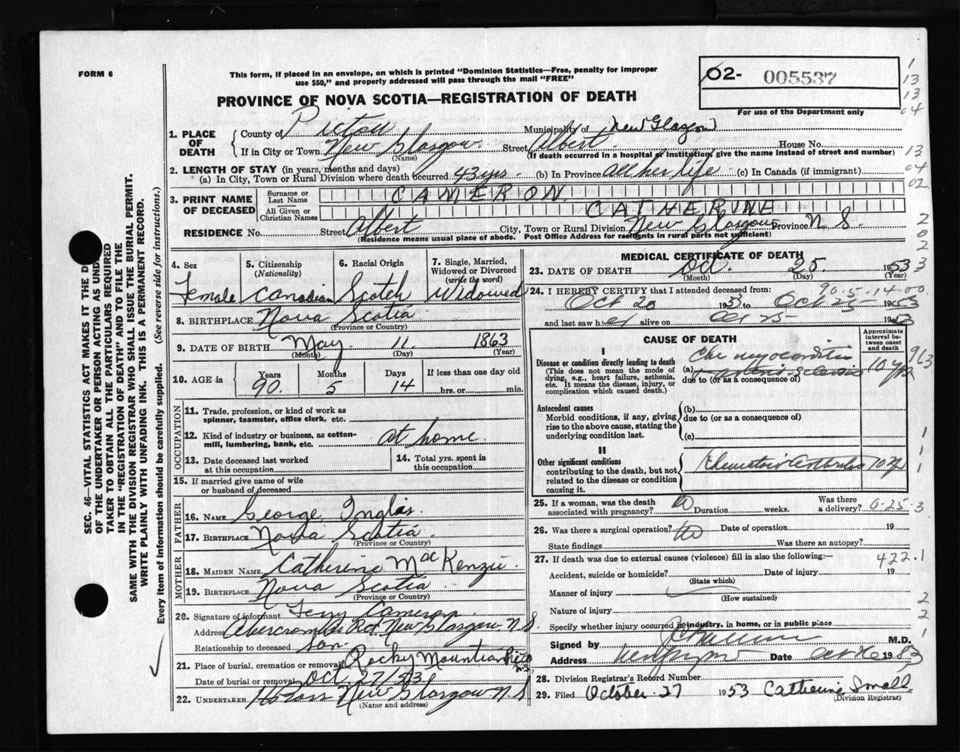 FORM 6
This form, if placed in an envelope, on which is printed "Dominion Statistics—Free, penalty for improper
use $50," and properly addressed will pass through the mail "FREE"
PROVINCE OF NOVA SCOTIA—REGISTRATION OF DEATH
02- 005537
For use of the Department only
1. PLACE OF DEATH County of Pictou Municipality of New Glasgow
If in City or Town New Glasgow (Name) Street Albert House No.
(If death occurred in a hospital or institution, give the name instead of street and number)
2. LENGTH OF STAY (in years, months and days)
(a) In City, Town or Rural Division where death occurred 43 yrs. (b) In Province all her life (c) In Canada (if immigrant)
3. PRINT NAME OF DECEASED Surname or Last Name CAMERON
All Given or Christian Names CATHERINE
RESIDENCE No. Street Albert City, Town or Rural Division New Glasgow Province N.S.
(Residence means usual place of abode. Post Office Address for residents in rural parts not sufficient)
4. Sex Female
5. Citizenship (Nationality) Canadian
6. Racial Origin Scotch
7. Single, Married, Widowed or Divorced (write the word) Widowed
8. BIRTHPLACE Nova Scotia (Province or Country)
9. DATE OF BIRTH May (Month) 11 (Day) 1863 (Year)
10. AGE in Years 90 Months 5 Days 14 If less than one day old hrs. or min.
OCCUPATION
11. Trade, profession, or kind of work as spinner, teamster, office clerk, etc.
12. Kind of industry or business, as cotton-mill, lumbering, bank, etc. at home
13. Date deceased last worked at this occupation
14. Total yrs. spent in this occupation
15. If married give name of wife or husband of deceased
FATHER
16. Name George Inglis
17. Birthplace Nova Scotia (Province or Country)
MOTHER
18. Maiden Name Catherine MacKenzie
19. Birthplace Nova Scotia (Province or Country)
20. Signature of informant Cameron
Address Abercrombie Rd. New Glasgow N.S.
Relationship to deceased son
21. Place of burial, cremation or removal Rocky Mountain
Date of burial or removal Oct 27/53
22. UNDERTAKER New Glasgow N.S.
(Name and address)
MEDICAL CERTIFICATE OF DEATH
23. DATE OF DEATH Oct. (Month) 25 (Day) 1953 (Year)
24. I HEREBY CERTIFY that I attended deceased from: 90-5-14-00
Oct 20 1953 to Oct 25 1953
and last saw her alive on Oct 25 1953
CAUSE OF DEATH
Approximate interval between onset and death
I
Disease or condition directly leading to death
(This does not mean the mode of dying, e.g., heart failure, asthenia, etc. It means the disease, injury, or complication which caused death.)
(a) Chr myocarditis 10 yrs
due to (or as a consequence of)
Antecedent causes
Morbid conditions, if any, giving rise to the above cause, stating the underlying condition last.
(b)
due to (or as a consequence of)
(c)
II
Other significant conditions contributing to the death, but not related to the disease or condition causing it.
Rheumatoid Arthritis 10 y
25. If a woman, was the death associated with pregnancy? Duration weeks. Was there a delivery?
26. Was there a surgical operation? no Date of operation 19
State findings Was there an autopsy?
27. If death was due to external causes (violence) fill in also the following:— 422.1
Accident, suicide or homicide? (State which) Date of injury 19
Manner of injury (How sustained)
Nature of injury
Specify whether injury occurred in industry, in home, or in public place
Signed by M.D.
Address Date 19
28. Division Registrar's Record Number
29. Filed October 27 1953 Catherine Small
(Division Registrar)
SEC. 46—VITAL STATISTICS ACT MAKES IT THE
OF THE UNDERTAKER OR PERSON ACTING AS
TAKER TO OBTAIN ALL THE PARTICULARS REQUIRED
IN THE "REGISTRATION OF DEATH" AND TO FILE THE
SAME WITH THE DIVISION REGISTRAR WHO SHALL ISSUE THE BURIAL PERMIT.
WRITE PLAINLY WITH UNFADING INK. THIS IS A PERMANENT RECORD.
Every item of information should be carefully supplied. (See reverse side for instructions.)